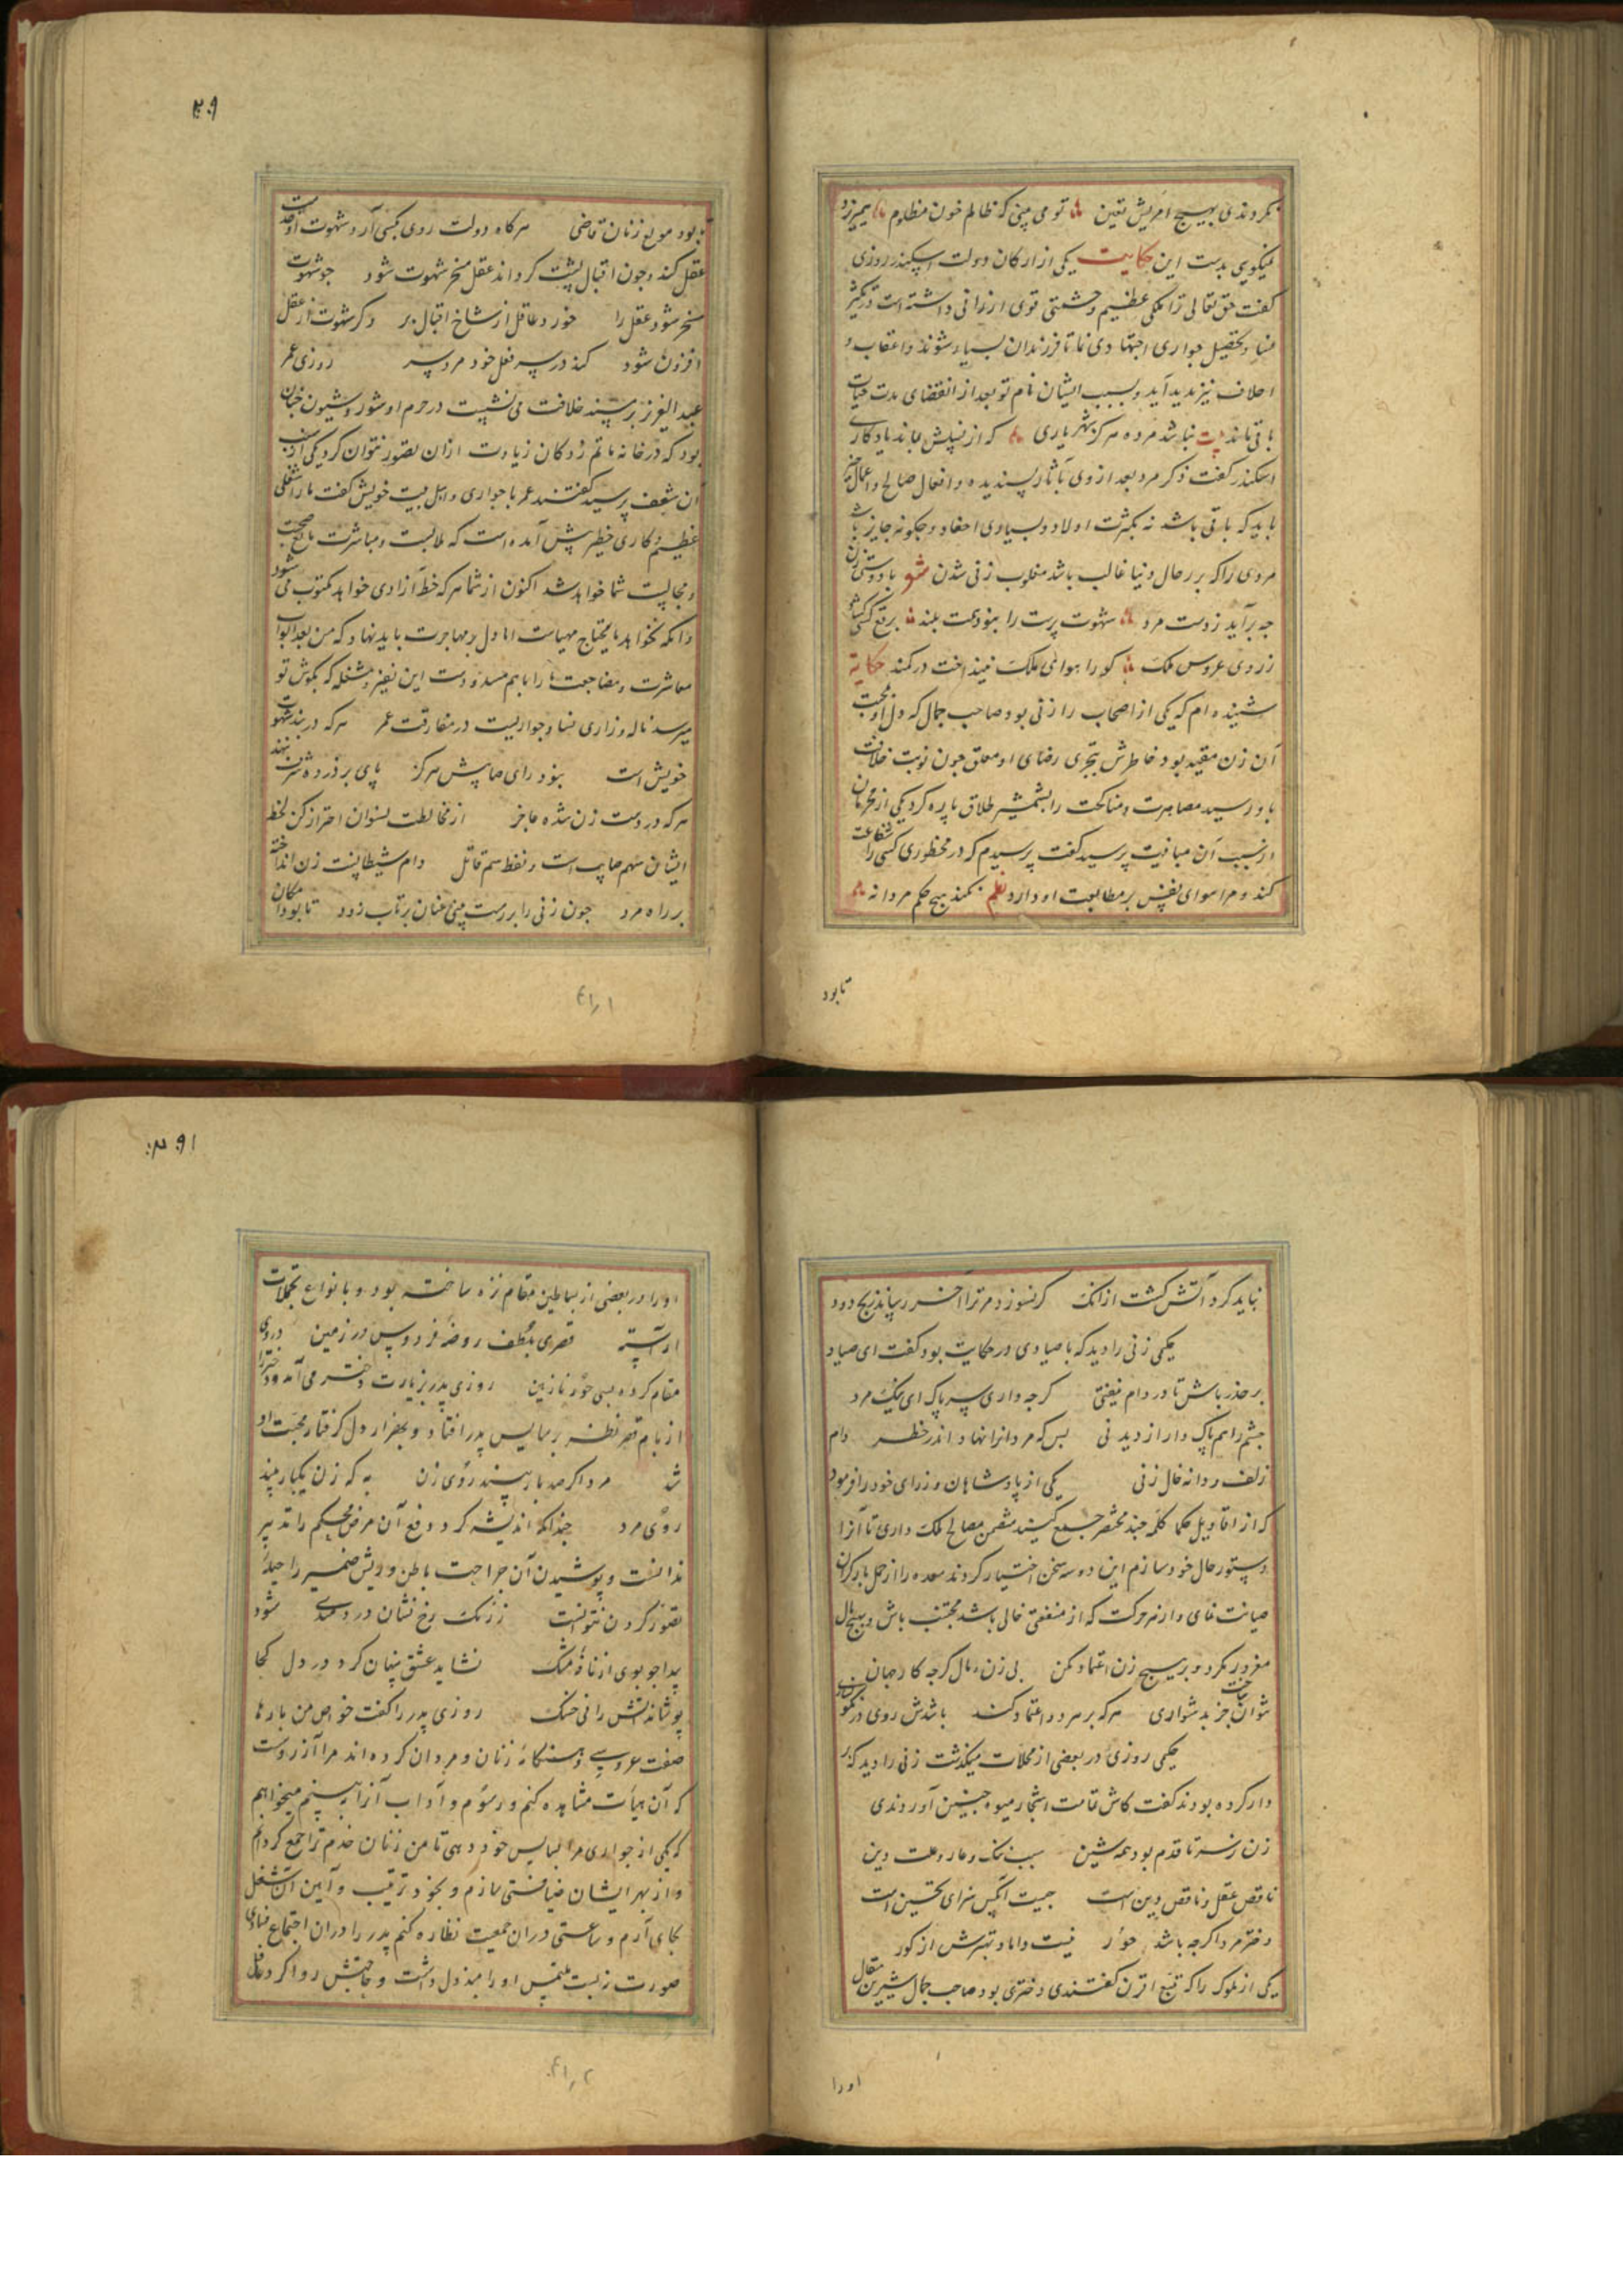 نکردندی بهیچ امریش تعین تو می بینی که ظالم خون مظلوم همیریزد
نمیگویی بدست این حکایت یکی از ارکان دولت اسکندر روزی
گفت حق تعالی ترا ملکی عظیم و حشمتی قوی ارزانی داشته است در تکثیر
نسا و تحصیل جواری اجتهادی نما تا فرزندان بسیار شوند و اعقاب و
اخلاف نیز پدید آید و بسبب ایشان نام تو بعد از انقضای مدت حیات
باقی ماند بیت نباشد مرده هرکز شهریاری که از نسلش بماند یادکاری
اسکندر گفت ذکر مرد بعد از وی بآثار پسندیده و افعال صالح و اعمال خیر
باید که باقی باشد نه بکثرت اولاد و بسیاری احفاد و چکونه جایز باشد
مردی را که بر رجال دنیا غالب باشد مغلوب زنی شدن شعر با دوستی زن
چه برآید ز دست مرد شهوت پرست را نبود همت بلند برقع کسی کشاد
ز روی عروس ملک کو را هوای ملک نینداخت در کمند حکایة
شنیده ام که یکی از اصحاب را زنی بود صاحب جمال که دل او بمحبت
آن زن مقید بود و خاطرش بتحری رضای او معلق چون نوبت خلافت
باو رسید مصاهرت و مناکحت را بشمشیر طلاق پاره کرد یکی از محرمان
از سبب آن مباینت پرسید گفت پرسیدم که در محظوری کسی را شفاعت
کند و مرا هوای نفس بر مطاوعت او دارد نظم نکند هیچ حکم مردانه
تابود
۳۰۹
نبود مولع زنان قاضی هرکاه دولت روی بکسی آرد شهوت او خدمت
عقل کند و چون اقبال پشت کرداند عقل مسخر شهوت شود چو شهوت
مسخر شود عقل را خورد عاقل از شاخ اقبال بر وکر شهوت از عقل
افزون شود کند در سر فعل خود مرد سر روزی عمر
عبد العزیز بر مسند خلافت می نشست در حرم او شور و شیون چنان
بود که در خانه ماتم زدکان زیادت از آن تصور نتوان کرد یکی از سبب
آن شغف پرسید گفتند عمر با جواری و اهل بیت خویش گفت ما را شغلی
عظیم و کاری خطیر پیش آمده است که ملابست و مباشرت مانع صحبت
و مجالست شما خواهد شد اکنون از شما هرکه خط آزادی خواهد مکتوب می شود
وانکه نخواهد مایحتاج مهیاست اما دل بر مهاجرت باید نهاد که من بعد ابواب
معاشرت و مضاجعت ما را باهم مسدود است این نفیر و مشغله که بکوش تو
میرسد ناله و زاری نسا و جواریست در مفارقت عمر هرکه در بند شهوت
خویش است نبود رای صایبش هرکز پای بر ذروه شرف ننهد
هرکه در دست زن شده عاجز از مخالطت نسوان احتراز کن لحظ
ایشان سهم صایب است و لفظ سم قاتل دام شیطانست زن انداخته
بر راه مرد چون زنی را بر رهت بینی عنان برتاب زود تا بود امکان
نباید کرد آتش کشت از انک کر نسوزد مر ترا آخر رساند رنج دود
حکیمی زنی را دید که با صیادی در حکایت بود گفت ای صیاد
بر حذر باش تا در دام نیفتی کرچه داری سر پاک ای نیک مرد
چشم را هم پاک دار از دید نی بس که مردانرا نهاد اندر خطر دام
زلف و دانه خال زنی یکی از پادشاهان وزرای خود را فرمود
که از اقاویل حکما کلمه چند مختصر جمع کنید متضمن مصالح ملک داری تا آنرا
دستور حال خود سازم این دو سه سخن اختیار کردند معده را از حمل بار کران
صیانت نمای و از هر حرکت که از منفعتی خالی باشد مجتنب باش و بهیچ مال
مغرور مکرد و بر هیچ زن اعتماد مکن بی زن و مال کرچه کار جهان
نتوان ساخت جز بدشواری هرکه بر هر دو اعتماد کند باشدش روی در نکوساری
حکیمی روزی در بعضی از محلات میکذشت زنی را دید که بر
دار کرده بودند گفت کاش تمامت اشجار میوه چنین آوردندی
زن ز سر تا قدم بود همه شین سبب ننک و عار و علت دین
ناقص عقل و ناقص دین است چیست آنکس سزای تحسین است
دختر مرد اکرچه باشد حور نیست داماد بهترش از کور
یکی از ملوک را که تبع اقرن گفتندی دختری بود صاحب جمال شیرین مقال
اورا
۳۱۰
او را در بعضی از بساطین مقام نزه ساخته بود و بانواع تجملات
آراسته قصری بلطف روضه فردوس در زمین در وی
مقام کرده بسی حور نازنین روزی پدر بزیارت دختر می آمد و دختر را
از بام قصر نظر بر سایس پدر افتاد و بیقرار دل کرفتار محبت او
شد مرد اکر صد بار بیند روی زن به که زن یکبار بیند
روی مرد چندانکه اندیشه کرد دفع آن مرض محکم را تدبیر
ندانست و پوشیدن آن جراحت باطن و ریش ضمیر را حیله
تصور کردن نتوانست ز رنک رخ نشان دردمندی شود
پیدا چو بوی از نافه مشک نشاید عشق پنهان کرد در دل کجا
پوشاند آتش را نی خشک روزی پدر را گفت خواص من بارها
صفت عروسی و هنکامه زنان و مردان کرده اند مرا آرزوست
که آن هیأت مشاهده کنم و رسوم و آداب آنرا ببینم میخواهم
که یکی از جواری مرا بسایس خود دهی تا من زنان خدم ترا جمع کردانم
و از بهر ایشان ضیافتی سازم و بخود ترتیب و آیین آن شغل
بجای آرم و ساعتی در آن جمعیت نظاره کنم پدر را در آن اجتماع فسادی
صورت نبست ملتمس او را مبذول داشت و حاجتش روا کرد غافل